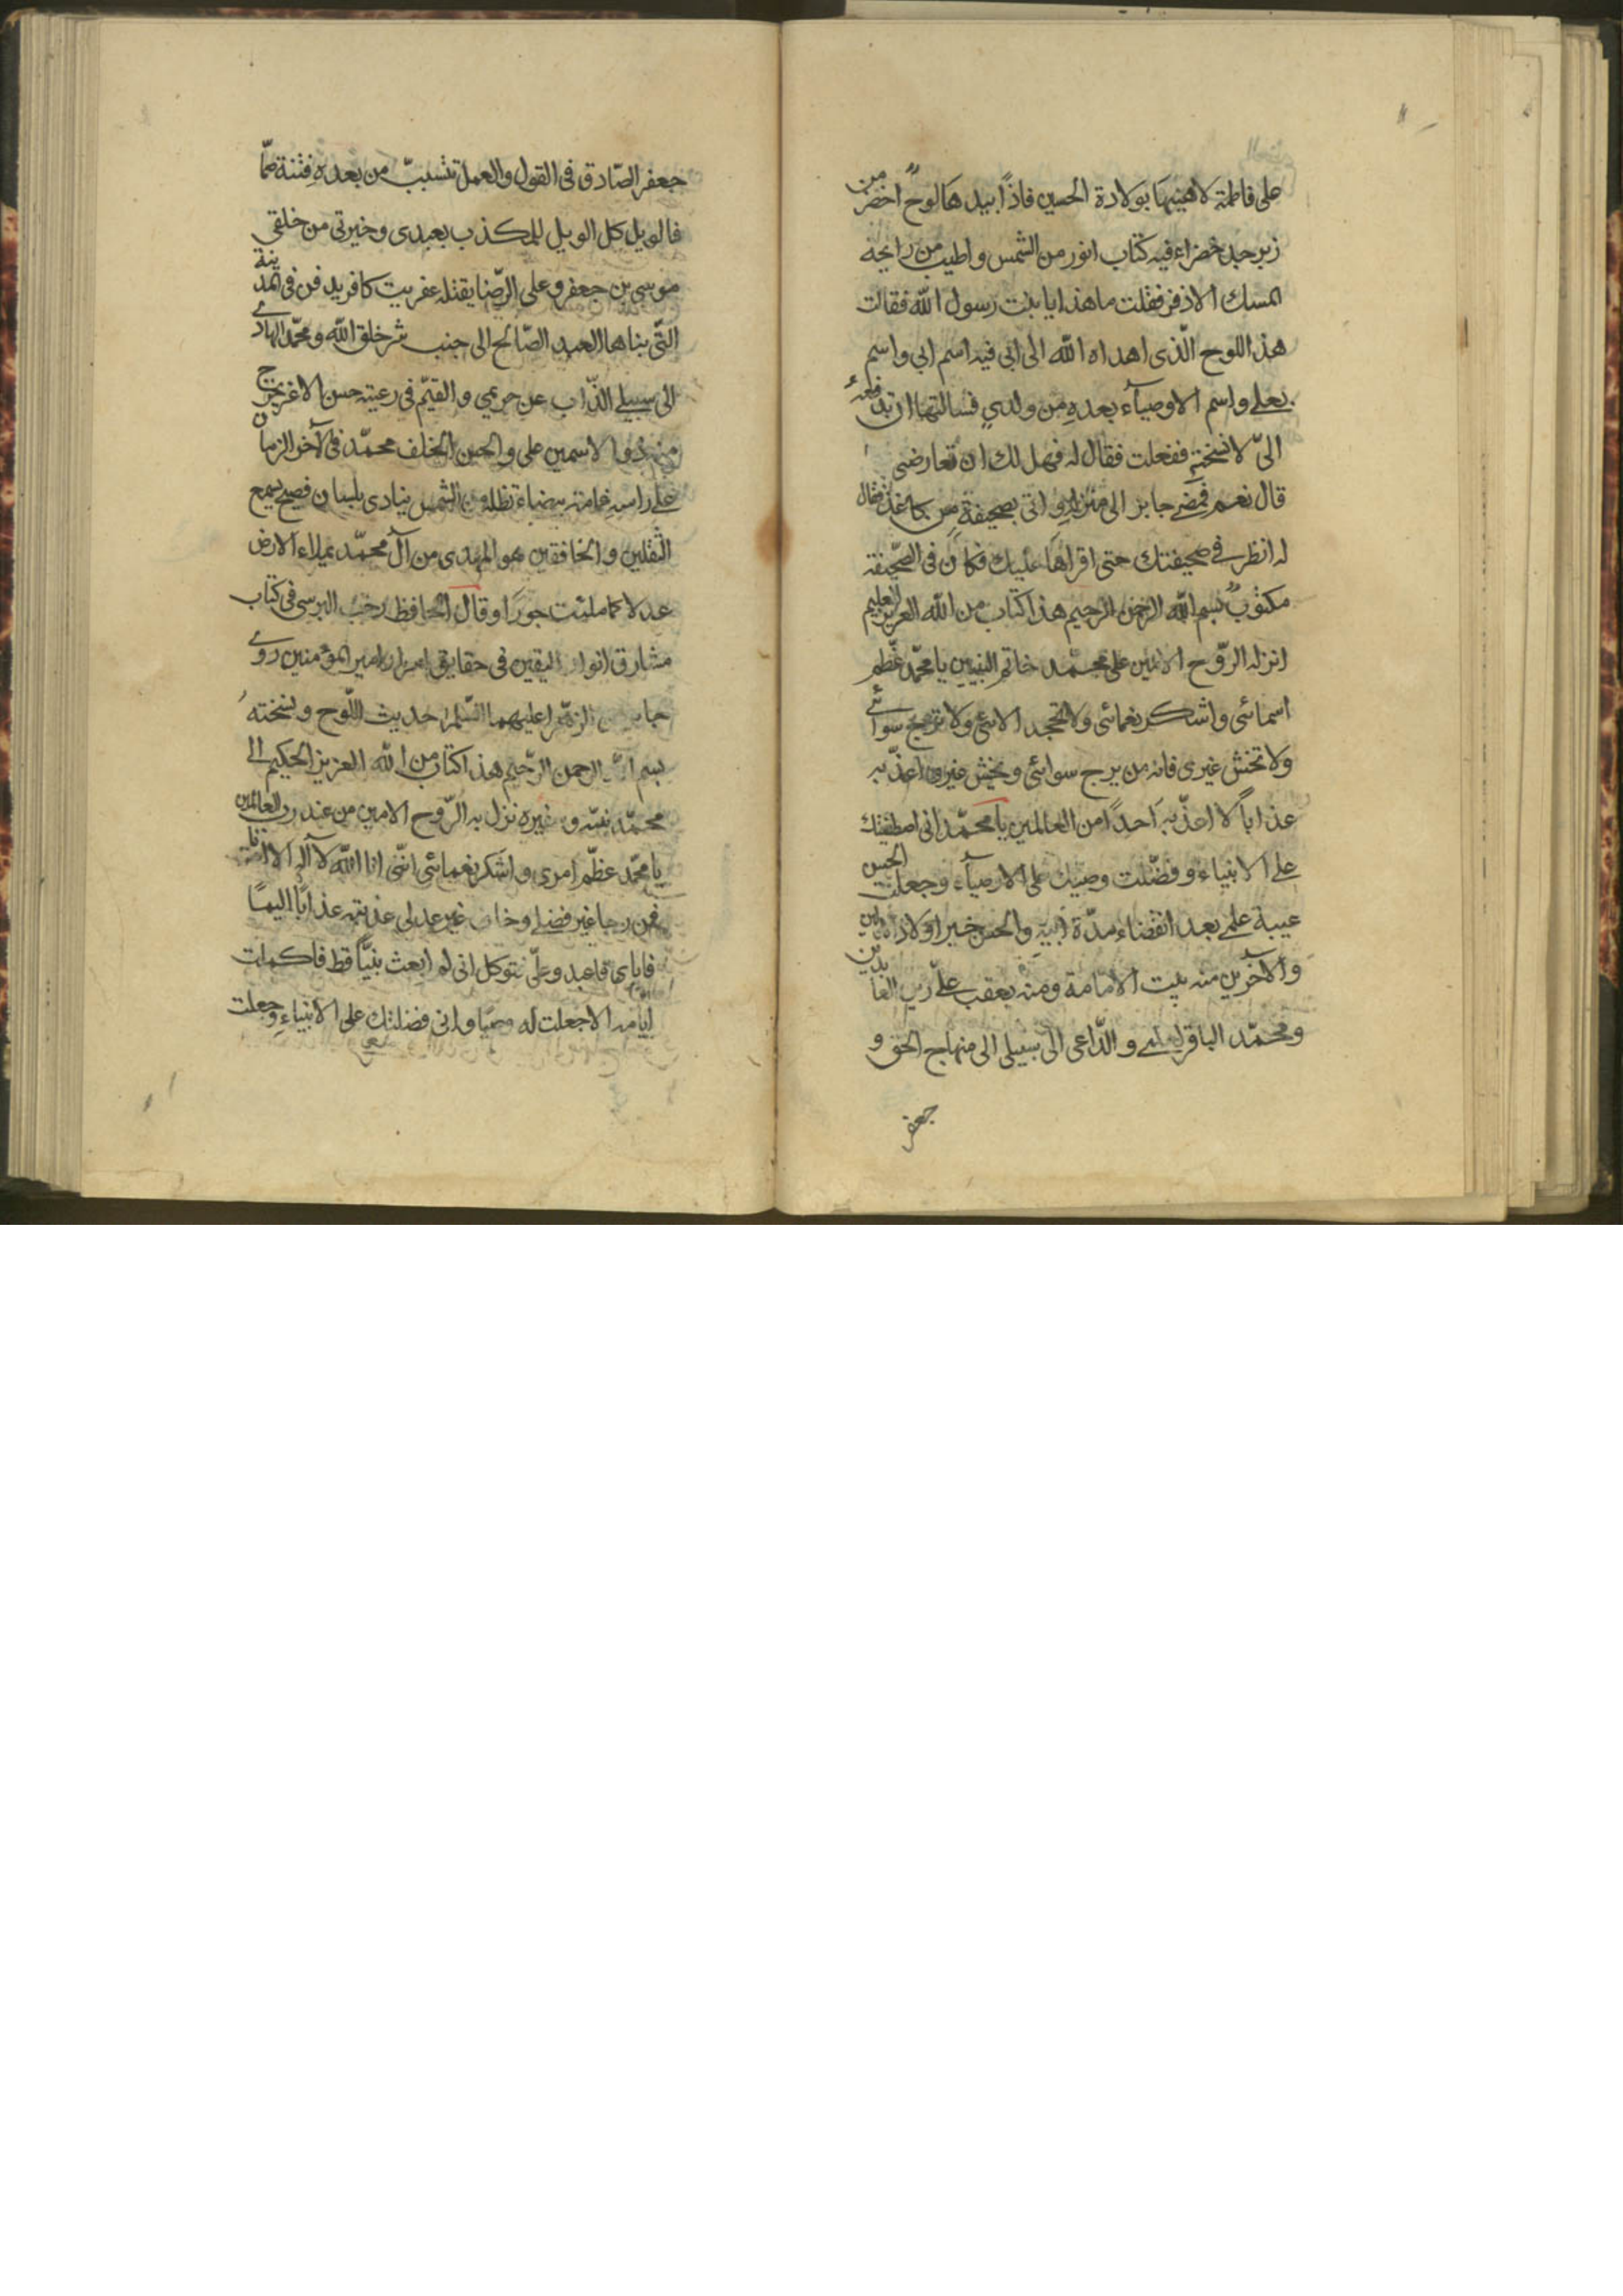 على فاطمة لاهنيها بولادة الحسين فاذاً بيدها لوحٌ اخضر من
زبرجد خضراء فيه كتاب انور من الشمس واطيب من رايحة
المسك الاذفر فقلت ما هذا يا بنت رسول الله فقالت
هذا اللوح الّذى اهداه الله الى ابى فيه اسم ابى واسم
بعلى واسم الاوصيآء بعده من ولدى فسالتها ان تدفعه
الىّ لانسخته ففعلت فقال له فهل لك ان تعارضنى
قال نعم فمضى جابر الى منزله واتى بصحيفة من كاغذ فقال
له انظر فى صحيفتك حتى اقراها عليك فكان فى الصّحيفة
مكتوبٌ بسم الله الرحمن الرحيم هذا كتاب من الله العزيز العليم
انزله الرّوح الامين على محمّد خاتم النبيين يا محمّد عظّم
اسمائى واشكر نعمائى ولا تجحد الائى ولا ترج سوائى
ولا تخش غيرى فانه من يرج سوائى ويخش غيرى اعذّبه
عذاباً لا اعذّبه احداً من العالمين يا محمّد انى اصطفيتك
على الانبياء وفضّلت وصيك على الاوصيآء وجعلت الحسن
عيبة علمى بعد انقضاء مدّة ابيه والحسين خير اولاد الاولين
والآخرين منه بيت الامامة ومنه يعقب علىّ زين العابدين
ومحمّد الباقر لعلمى والدّاعى الى سبيلى الى منهاج الحق و
جعفر
جعفر الصّادق فى القول والعمل تتسبّب من بعده فتنة صمّا
فالويل كل الويل للمكذب بعبدى وخيرتى من خلقى
موسى بن جعفر وعلى الرّضا يقتله عفريت كافر يدفن فى المدينة
التّى بناها العبد الصّالح الى جنب شر خلق الله ومحمّد الهادى
الى سبيلى الذّاب عن حريمى والقيّم فى رعيته حسن الاغر يخرج
منه ذوا الاسمين على والحسن الخلف محمّد فى آخر الزمان
على راسه غمامة بيضاء تظله من الشمس ينادى بلسان فصيح يسمع
الثّقلين والخافقين هو المهدى من آل محمّد يملاء الارض
عدلا كما ملئت جورًا وقال الحافظ رجب البرسى فى كتاب
مشارق انوار اليقين فى حقايق اسرار امير المؤمنين روى
جابر عن الزهرا عليهما السّلم حديث اللّوح ونسخته
بسم الله الرحمن الرّحيم هذا كتاب من الله العزيز الحكيم الى
محمّد نبيّه وسفيره نزل به الرّوح الامين من عند رب العالمين
يا محمّد عظّم امرى واشكر نعمائى انّنى انا الله لا اله الا انا
فمن رجا غير فضلى وخاف غير عدلى عذبته عذاباً اليمًا
فاياى فاعبد وعلىّ فتوكل انى لم ابعث نبيّاً قط فاكملت
ايامه الا جعلت له وصيّا وانى فضلتك على الانبياء وجعلت